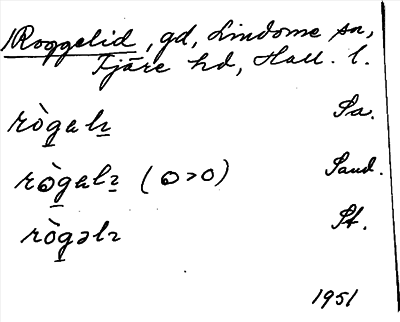 Roggelid, gd, Lindome sn,
Fjäre hd, Hall. l.
rò̱galꝛ Sa.
rò̱galꝛ (o>o) Sand.
rò̱gəlꝛ St.
1951